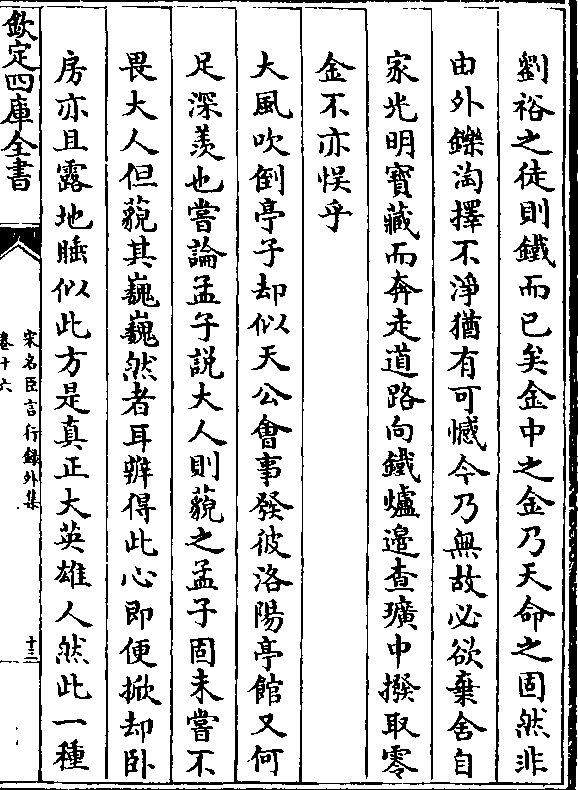 劉裕之徒則鐵而已矣金中之金乃天命之固然非
由外鑠淘擇不淨猶有可憾今乃無故必欲棄舍自
家光明寶藏而奔走道路向鐵爐邉查礦中撥取零
金不亦悞乎
大風吹倒亭子却似天公㑹事發彼洛陽亭館又何
足深羨也嘗論孟子説大人則藐之孟子固未嘗不
畏大人但藐其巍巍然者耳辦得此心即便掀却卧
房亦且露地睡似此方是真正大英雄人然此一種
欽定四庫全書
宋名臣言行錄外集
卷十六
十三